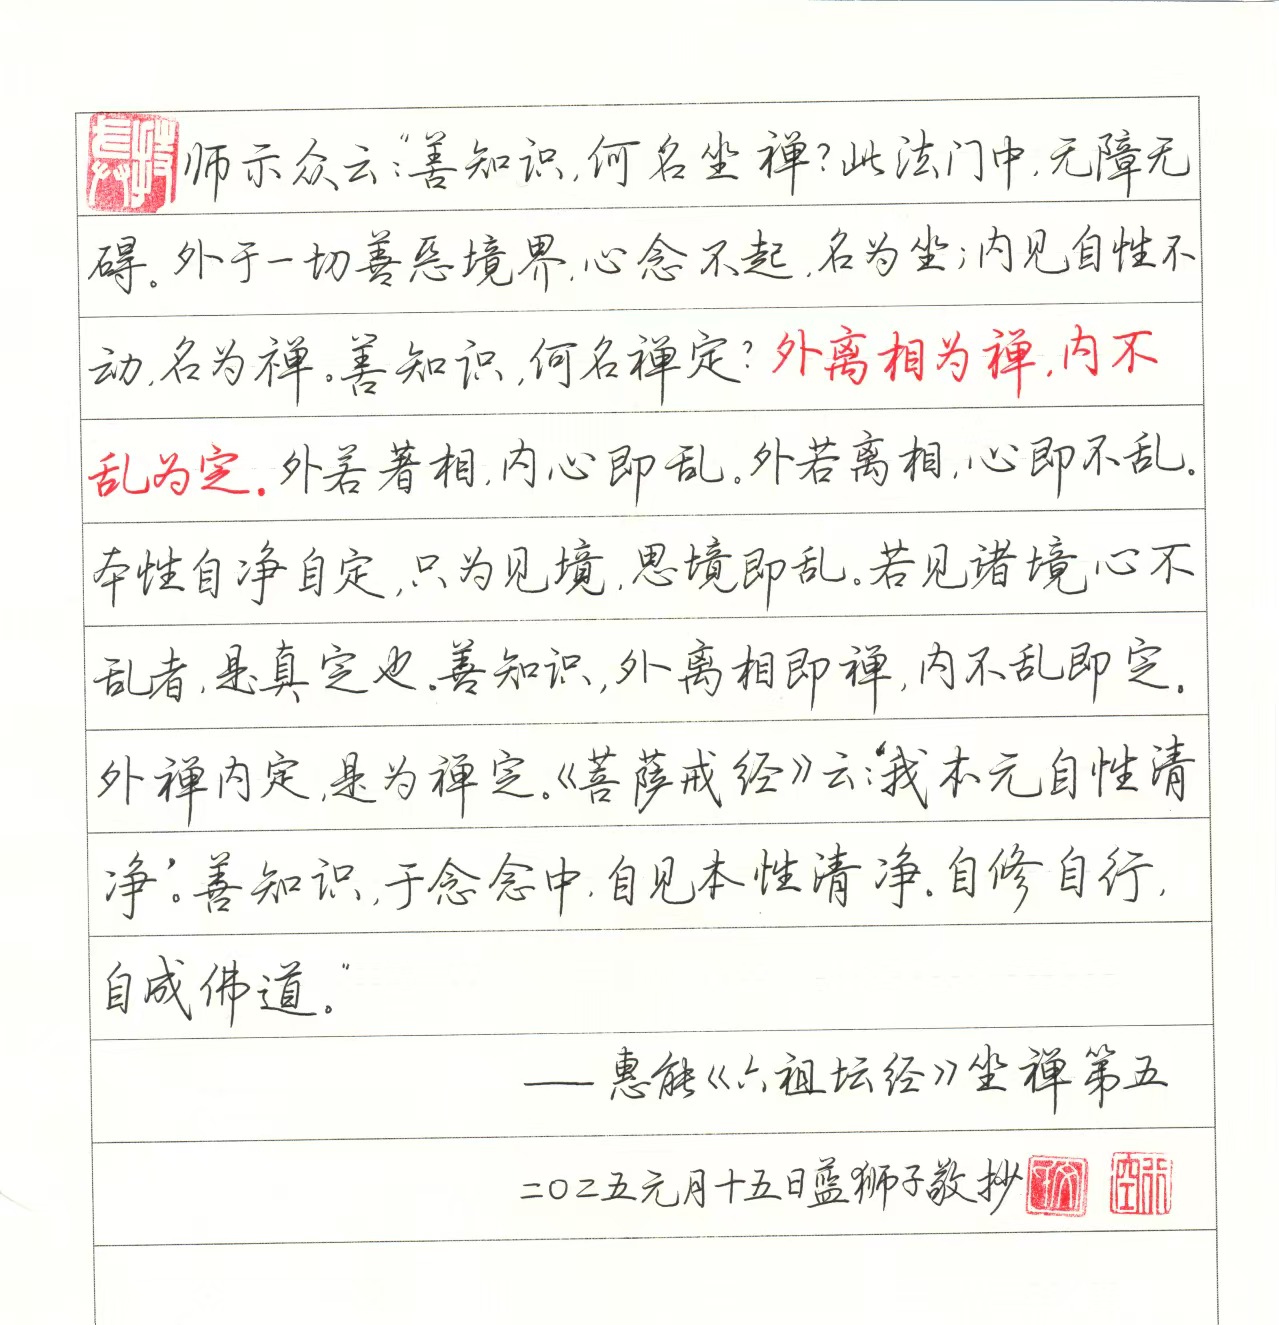 师示众云："善知识,何名坐禅?此法门中,无障无
碍。外于一切善恶境界,心念不起,名为坐;内见自性不
动,名为禅。善知识,何名禅定?外离相为禅,内不
乱为定.外若著相,内心即乱。外若离相,心即不乱。
本性自净自定,只为见境,思境即乱。若见诸境心不
乱者,是真定也。善知识,外离相即禅,内不乱即定.
外禅内定,是为禅定。《菩萨戒经》云:'我本元自性清
净'。善知识,于念念中,自见本性清净.自修自行,
自成佛道。"
——惠能《六祖坛经》坐禅第五
二〇二五元月十五日蓝狮子敬抄